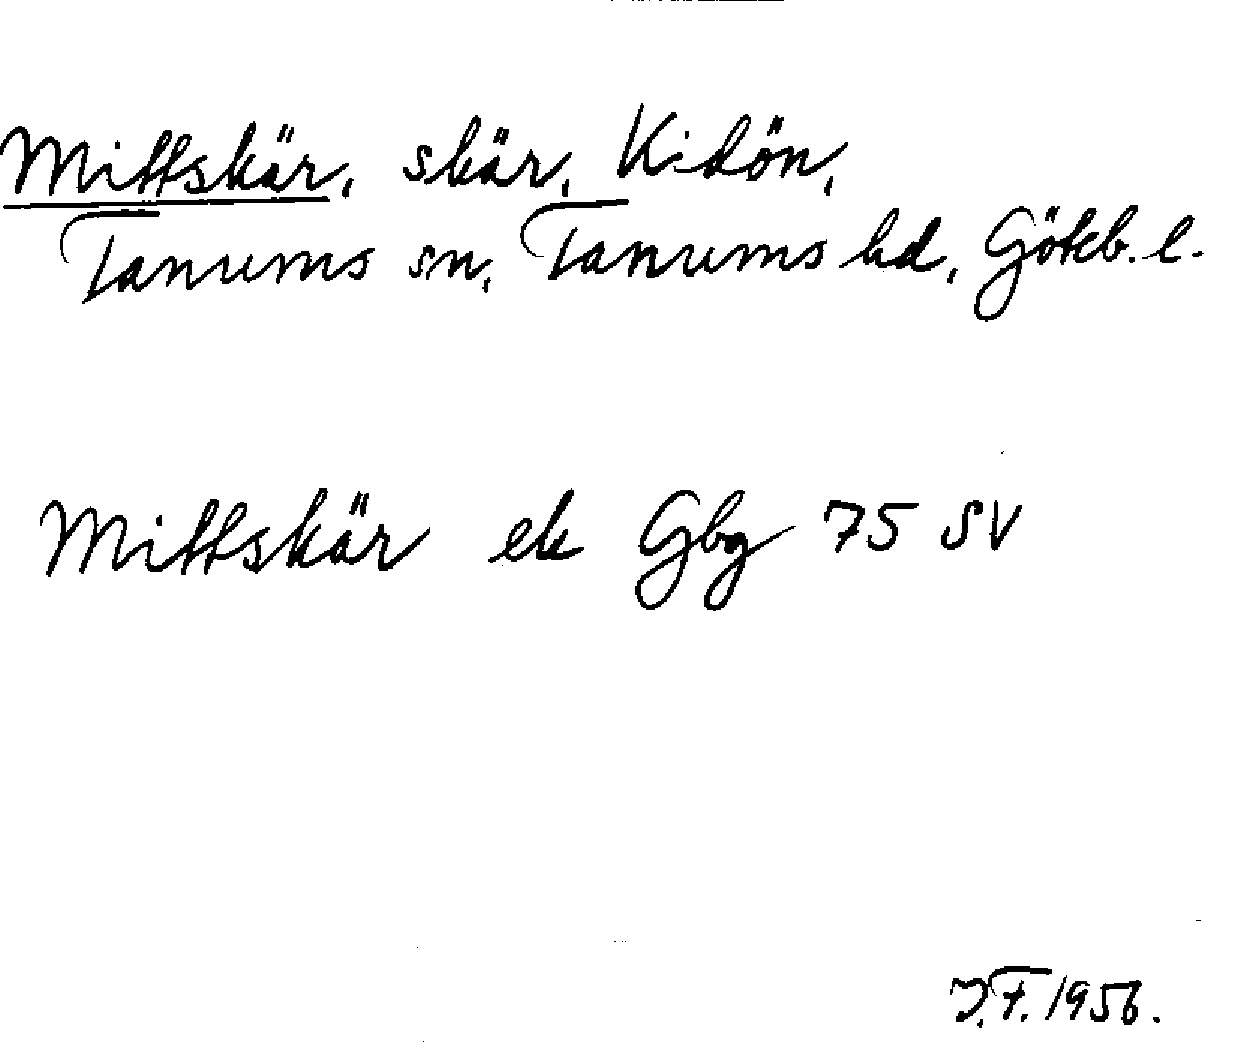 Mittskär, skär, Kidön,
Tanums sn, Tanums hd, Göteb. l.
Mittskär ek Gbg 75 SV
J.F. 1956.